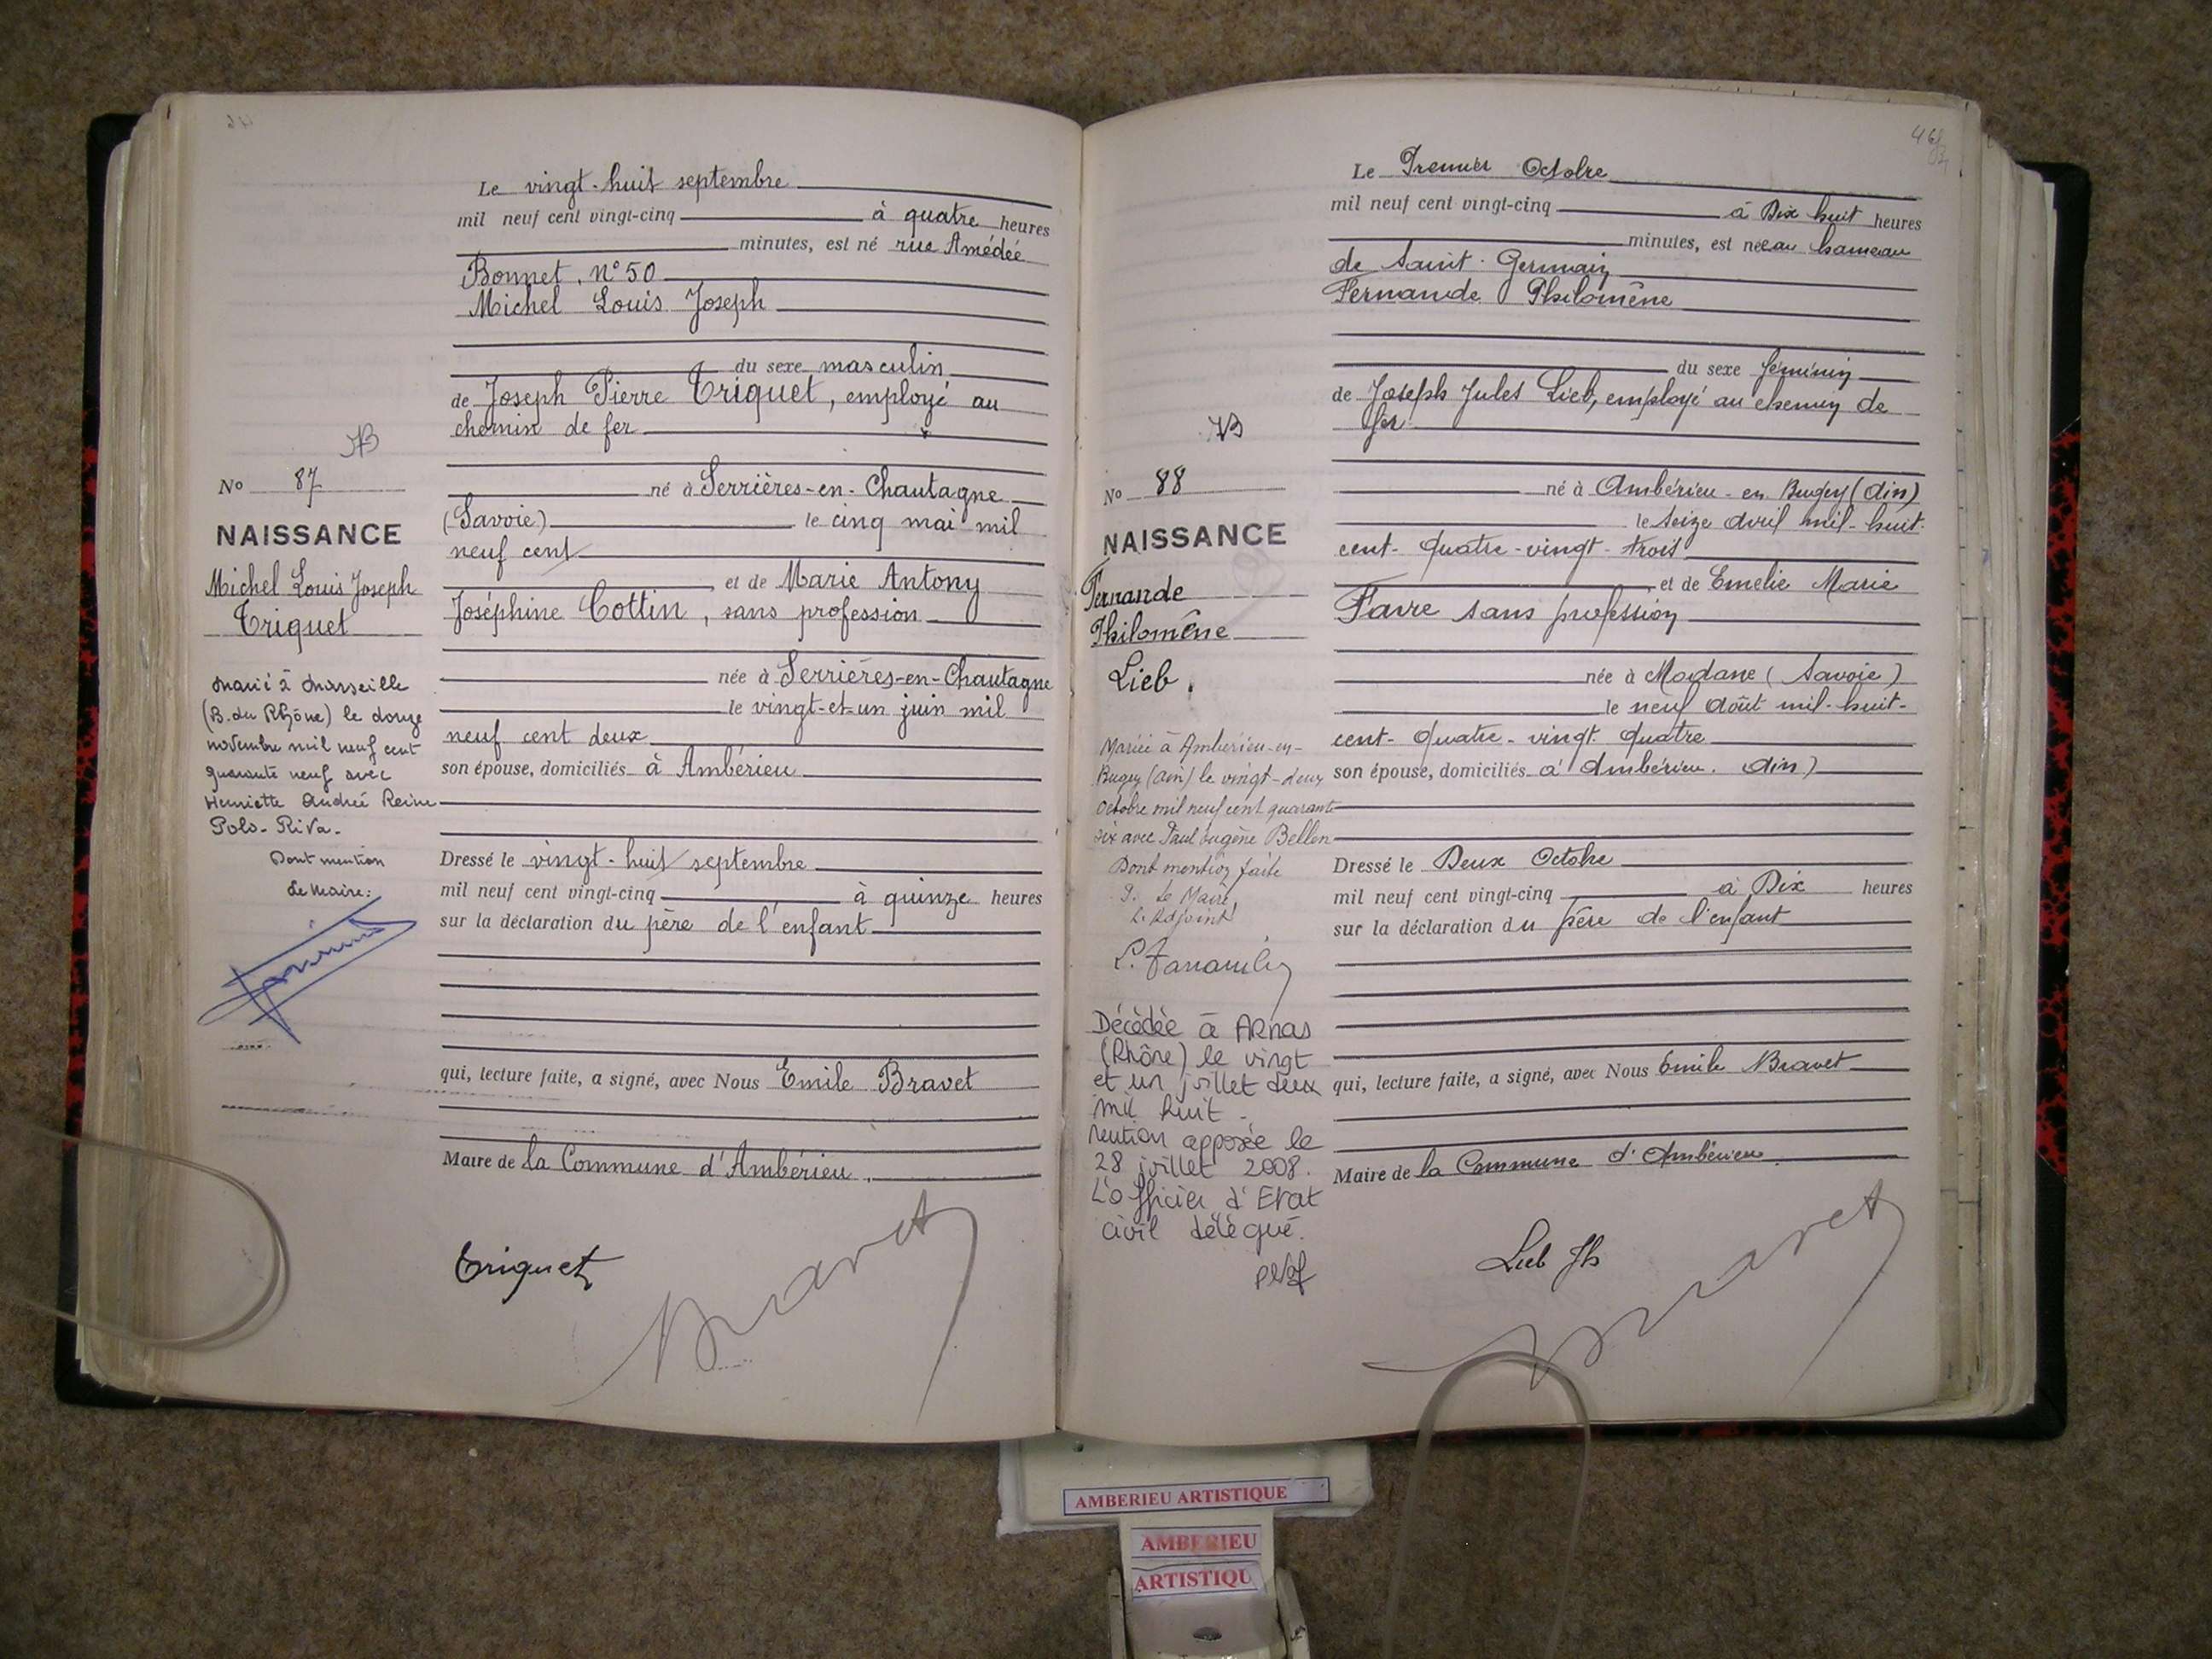 Le vingt-huit septembre
mil neuf cent vingt-cinq à quatre heures
minutes, est né rue Amédée
Bonnet, n° 50
Michel Louis Joseph
du sexe masculin
de Joseph Pierre Triquet, employé au
chemin de fer
né à Serrières-en-Chautagne
(Savoie) le cinq mai mil
neuf cent
et de Marie Antony
Joséphine Cottin, sans profession
née à Serrières-en-Chautagne
le vingt-et-un juin mil
neuf cent deux
son épouse, domiciliés à Ambérieu
Dressé le vingt-huit septembre
mil neuf cent vingt-cinq à quinze heures
sur la déclaration du père de l'enfant
qui, lecture faite, a signé, avec Nous Emile Bravet
Maire de la Commune d'Ambérieu.
Triquet
Bravet
No 87
NAISSANCE
Michel Louis Joseph
Triquet
Marié à Marseille
(B. du Rhône) le douze
novembre mil neuf cent
quarante neuf avec
Henriette Andrée Reine
Pols-Riva.
Dont mention
Le Maire:
Le Premier Octobre
mil neuf cent vingt-cinq à Dix huit heures
minutes, est née au hameau
de Saint-Germain
Fernande Philomène
du sexe féminin
de Joseph Jules Lieb, employé au chemin de
fer
né à Ambérieu-en Bugey (Ain)
le seize Avril mil-huit-
cent-quatre-vingt-trois
et de Emelie Marie
Favre sans profession
née à Modane (Savoie)
le neuf Août mil-huit-
cent-quatre-vingt quatre
son épouse, domiciliés à Ambérieu. Ain)
Dressé le Deux Octobre
mil neuf cent vingt-cinq à Dix heures
sur la déclaration du père de l'enfant
qui, lecture faite, a signé, avec Nous Emile Bravet
Maire de la Commune d'Ambérieu.
Lieb Jh
Bravet
No 88
NAISSANCE
Fernande
Philomène
Lieb.
Mariée à Ambérieu-en-
Bugey (Ain) le vingt-deux
octobre mil neuf cent quarante
six avec Paul Eugène Bellon
Dont mention faite
P. Le Maire
L'Adjoint
Décédée à ARNAS
(Rhône) le vingt
et un juillet deux
mil huit -
mention apposée le
28 juillet 2008.
L'officier d'Etat
civil délégué.
AMBERIEU ARTISTIQUE
AMBERIEU
ARTISTIQU